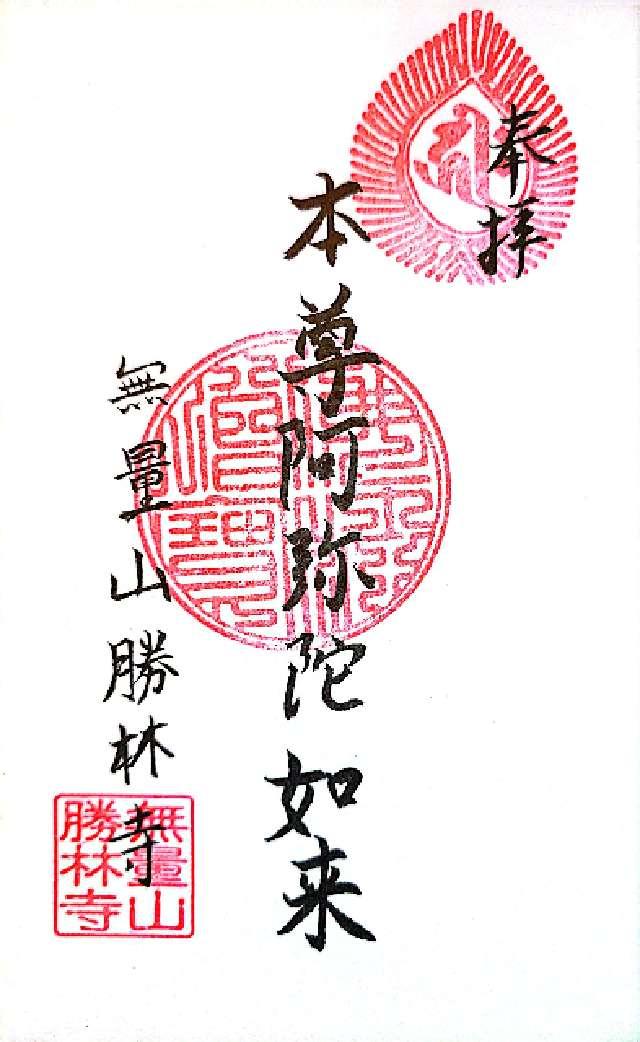 奉拝
本尊阿弥陀如来
無量山勝林寺
無量山
勝林寺